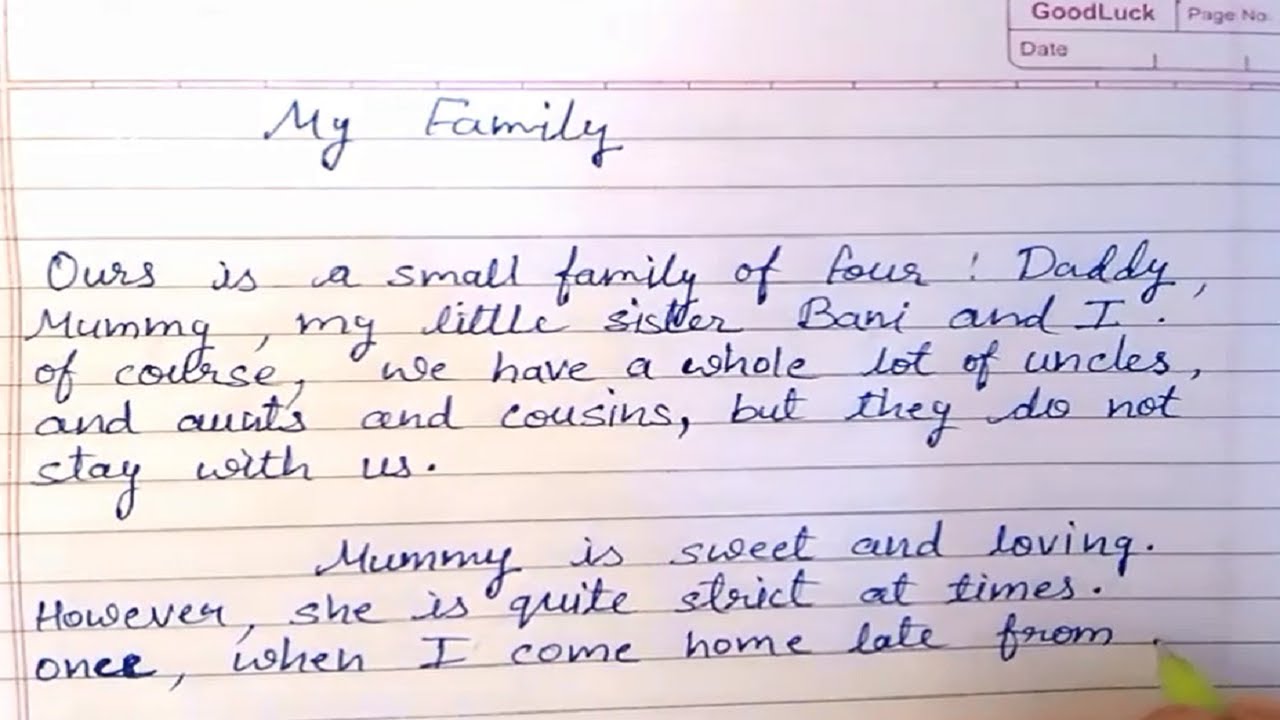 GoodLuck
Page No.
Date
My Family
Ours is a small family of four : Daddy,
Mummy, my little sister Bani and I.
of course, we have a whole lot of uncles,
and aunts and cousins, but they do not
stay with us.
Mummy is sweet and loving.
However, she is quite strict at times.
once, when I come home late from